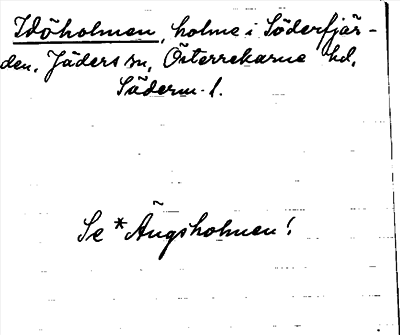 Idöholmen, holme i Söderfjär-
den, Jäders sn, Österrekarne hd,
Söderm. l.
Se *Ängsholmen!